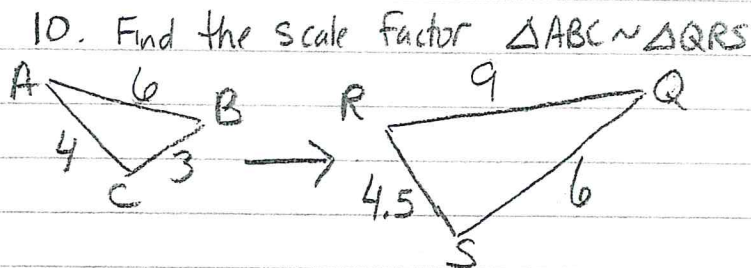 10. Find the scale factor △ABC ~ △QRS
A 6 B R 9 Q
4 3 4.5 6
C S